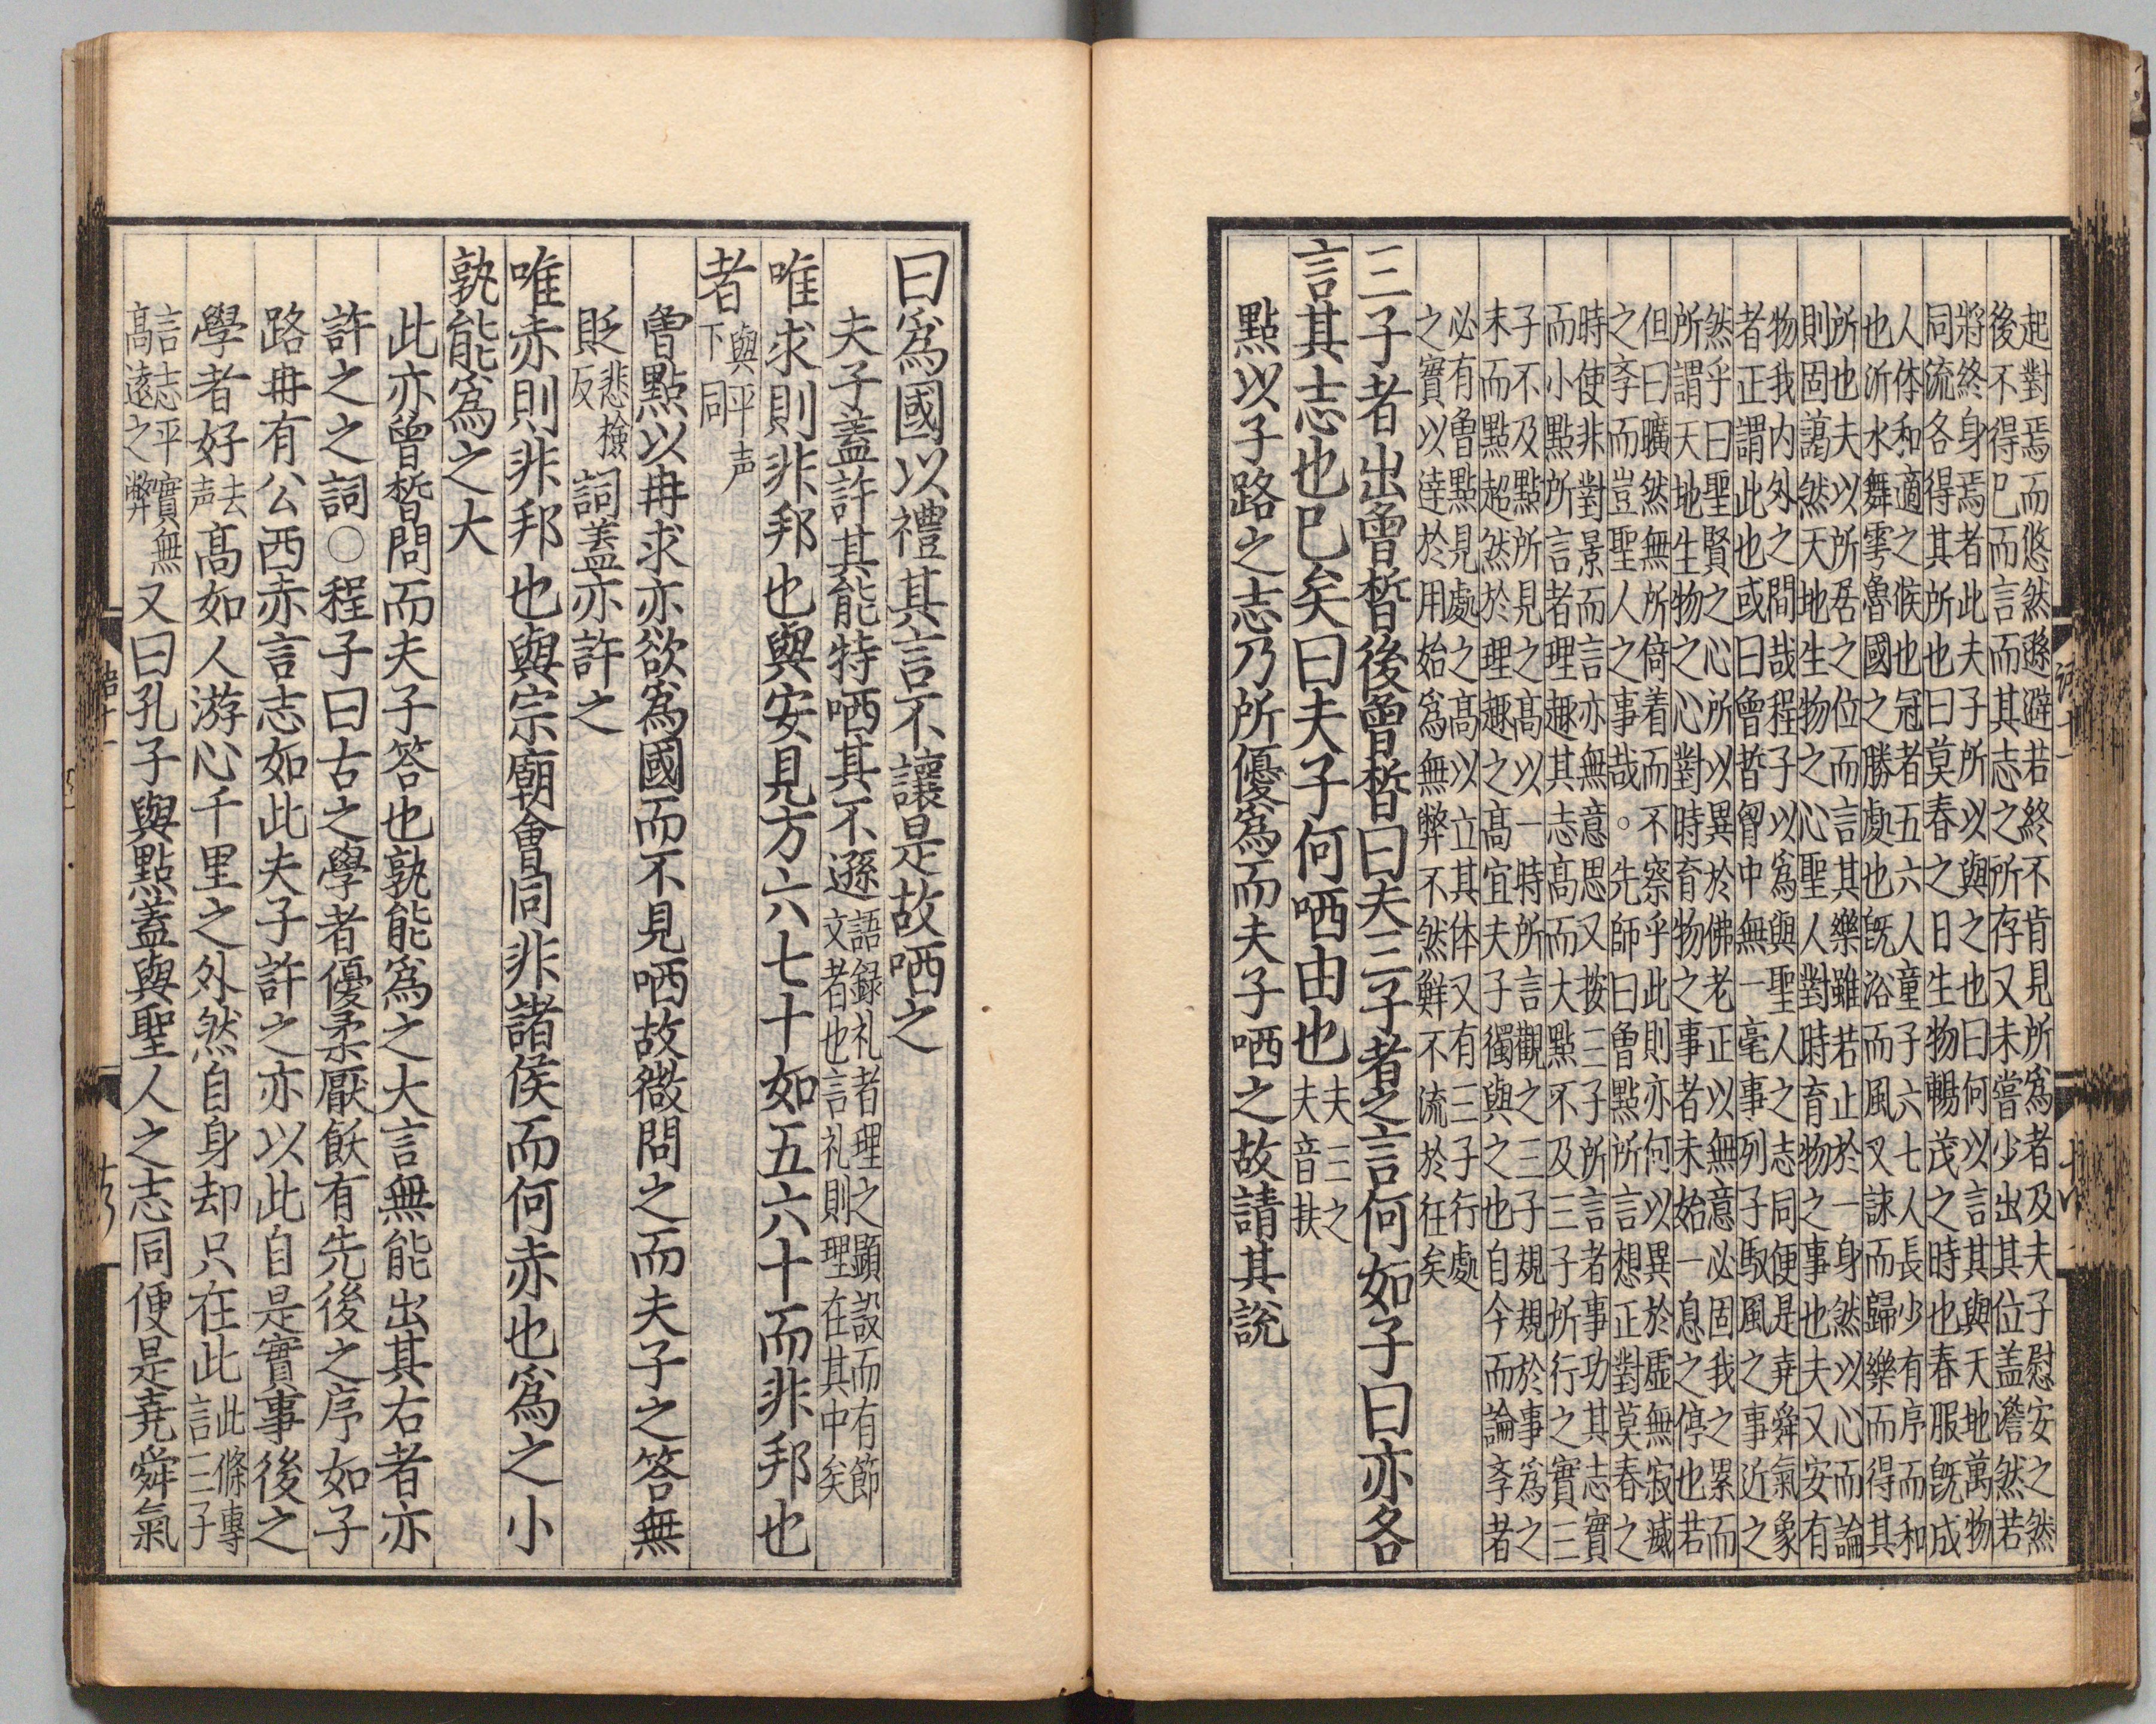 起對焉而悠然遜避若終不肯見所爲者及夫子慰安之然
後不得已而言而其志之所存又未嘗少出其位盖澹然若
將終身焉者此夫子所以與之也曰何以言其與天地萬物
同流各得其所也曰莫春之日生物暢茂之時也春服既成
人体和適之候也冠者五六人童子六七人長少有序而和
也沂水舞雩魯國之勝處也既浴而風又詠而歸樂而得其
所也夫以所居之位而言其樂雖若止於一身然以心而論
則固藹然天地生物之心聖人對時育物之事也夫又安有
物我内外之間哉程子以爲與聖人之志同便是堯舜氣象
者正謂此也或曰曾晳胷中無一毫事列子馭風之事近之
然乎曰聖賢之心所以異於佛老正以無意必固我之累而
所謂天地生物之心對時育物之事者未始一息之停也若
但曰曠然無所倚着而不察乎此則亦何以異於虛無寂滅
之斈而豈聖人之事哉。先師曰曾點所言想正對莫春之
時使非對景而言亦無意思又按三子所言者事功其志實
而小點所言者理趣其志高而大點不及三子所行之實三
子不及點所見之髙以一時所言觀之三子規規於事爲之
末而點超然於理趣之髙宜夫子獨與之也自今而論斈者
必有曾點見處之髙以立其体又有三子行處
之實以達於用始爲無弊不然鮮不流於狂矣
三子者出曾晳後曾晳曰夫三子者之言何如子曰亦各
言其志也已矣曰夫子何哂由也夫三之
夫音扶
點以子路之志乃所優爲而夫子哂之故請其說
曰爲國以禮其言不讓是故哂之
夫子盖許其能特哂其不遜語録礼者理之顯設而有節
文者也言礼則理在其中矣
唯求則非邦也與安見方六七十如五六十而非邦也
者與平声
下同
曾點以冉求亦欲爲國而不見哂故微問之而夫子之答無
貶悲檢
反詞盖亦許之
唯赤則非邦也與宗廟會同非諸侯而何赤也爲之小
孰能爲之大
此亦曾晳問而夫子答也孰能爲之大言無能出其右者亦
許之之詞○程子曰古之學者優柔厭飫有先後之序如子
路冉有公西赤言志如此夫子許之亦以此自是實事後之
學者好去
声髙如人游心千里之外然自身却只在此此條專
言三子
言志平實無
髙遠之弊又曰孔子與點蓋與聖人之志同便是堯舜氣